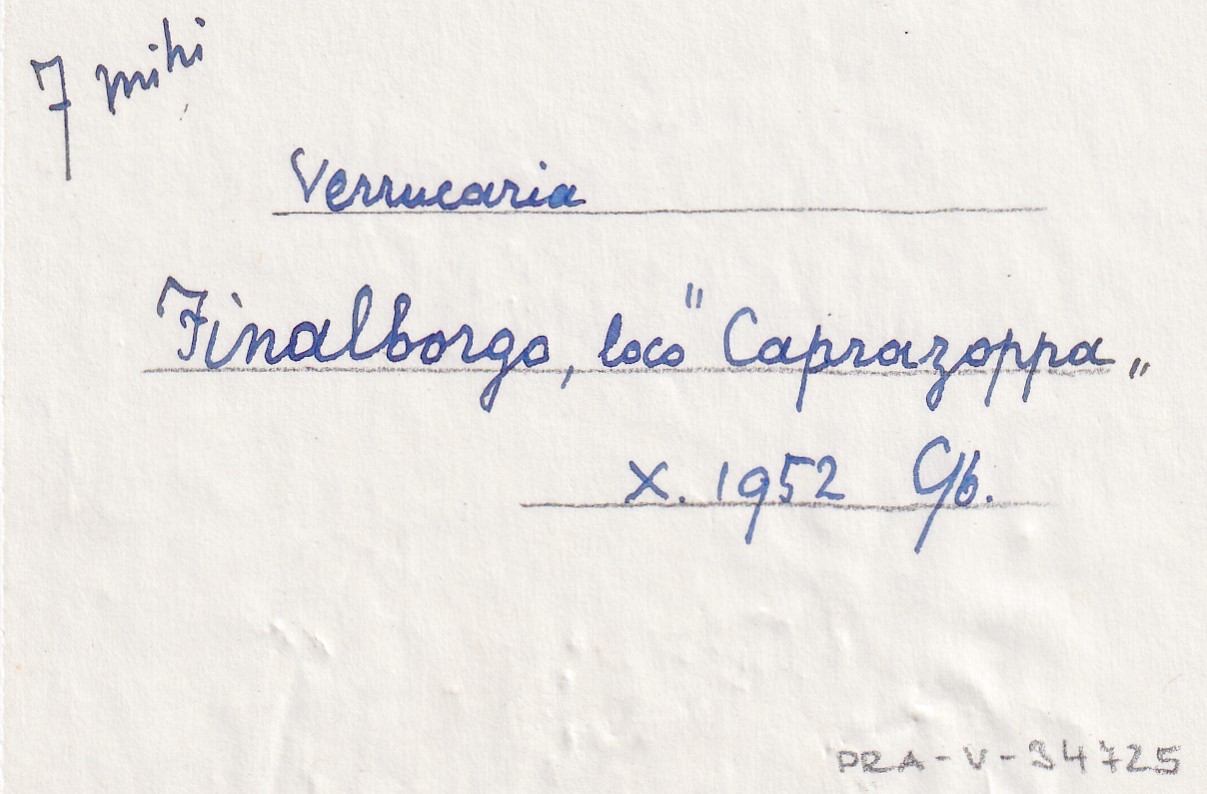 7 mihi
Verrucaria
Finalborgo, loco "Caprazoppa"
X. 1952 Gb.
PRA-V-34725